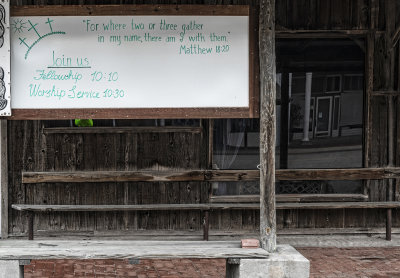 "For where two or three gather
in my name, there am I with them."
Matthew 18:20
Join us
Fellowship 10:10
Worship Service 10:30